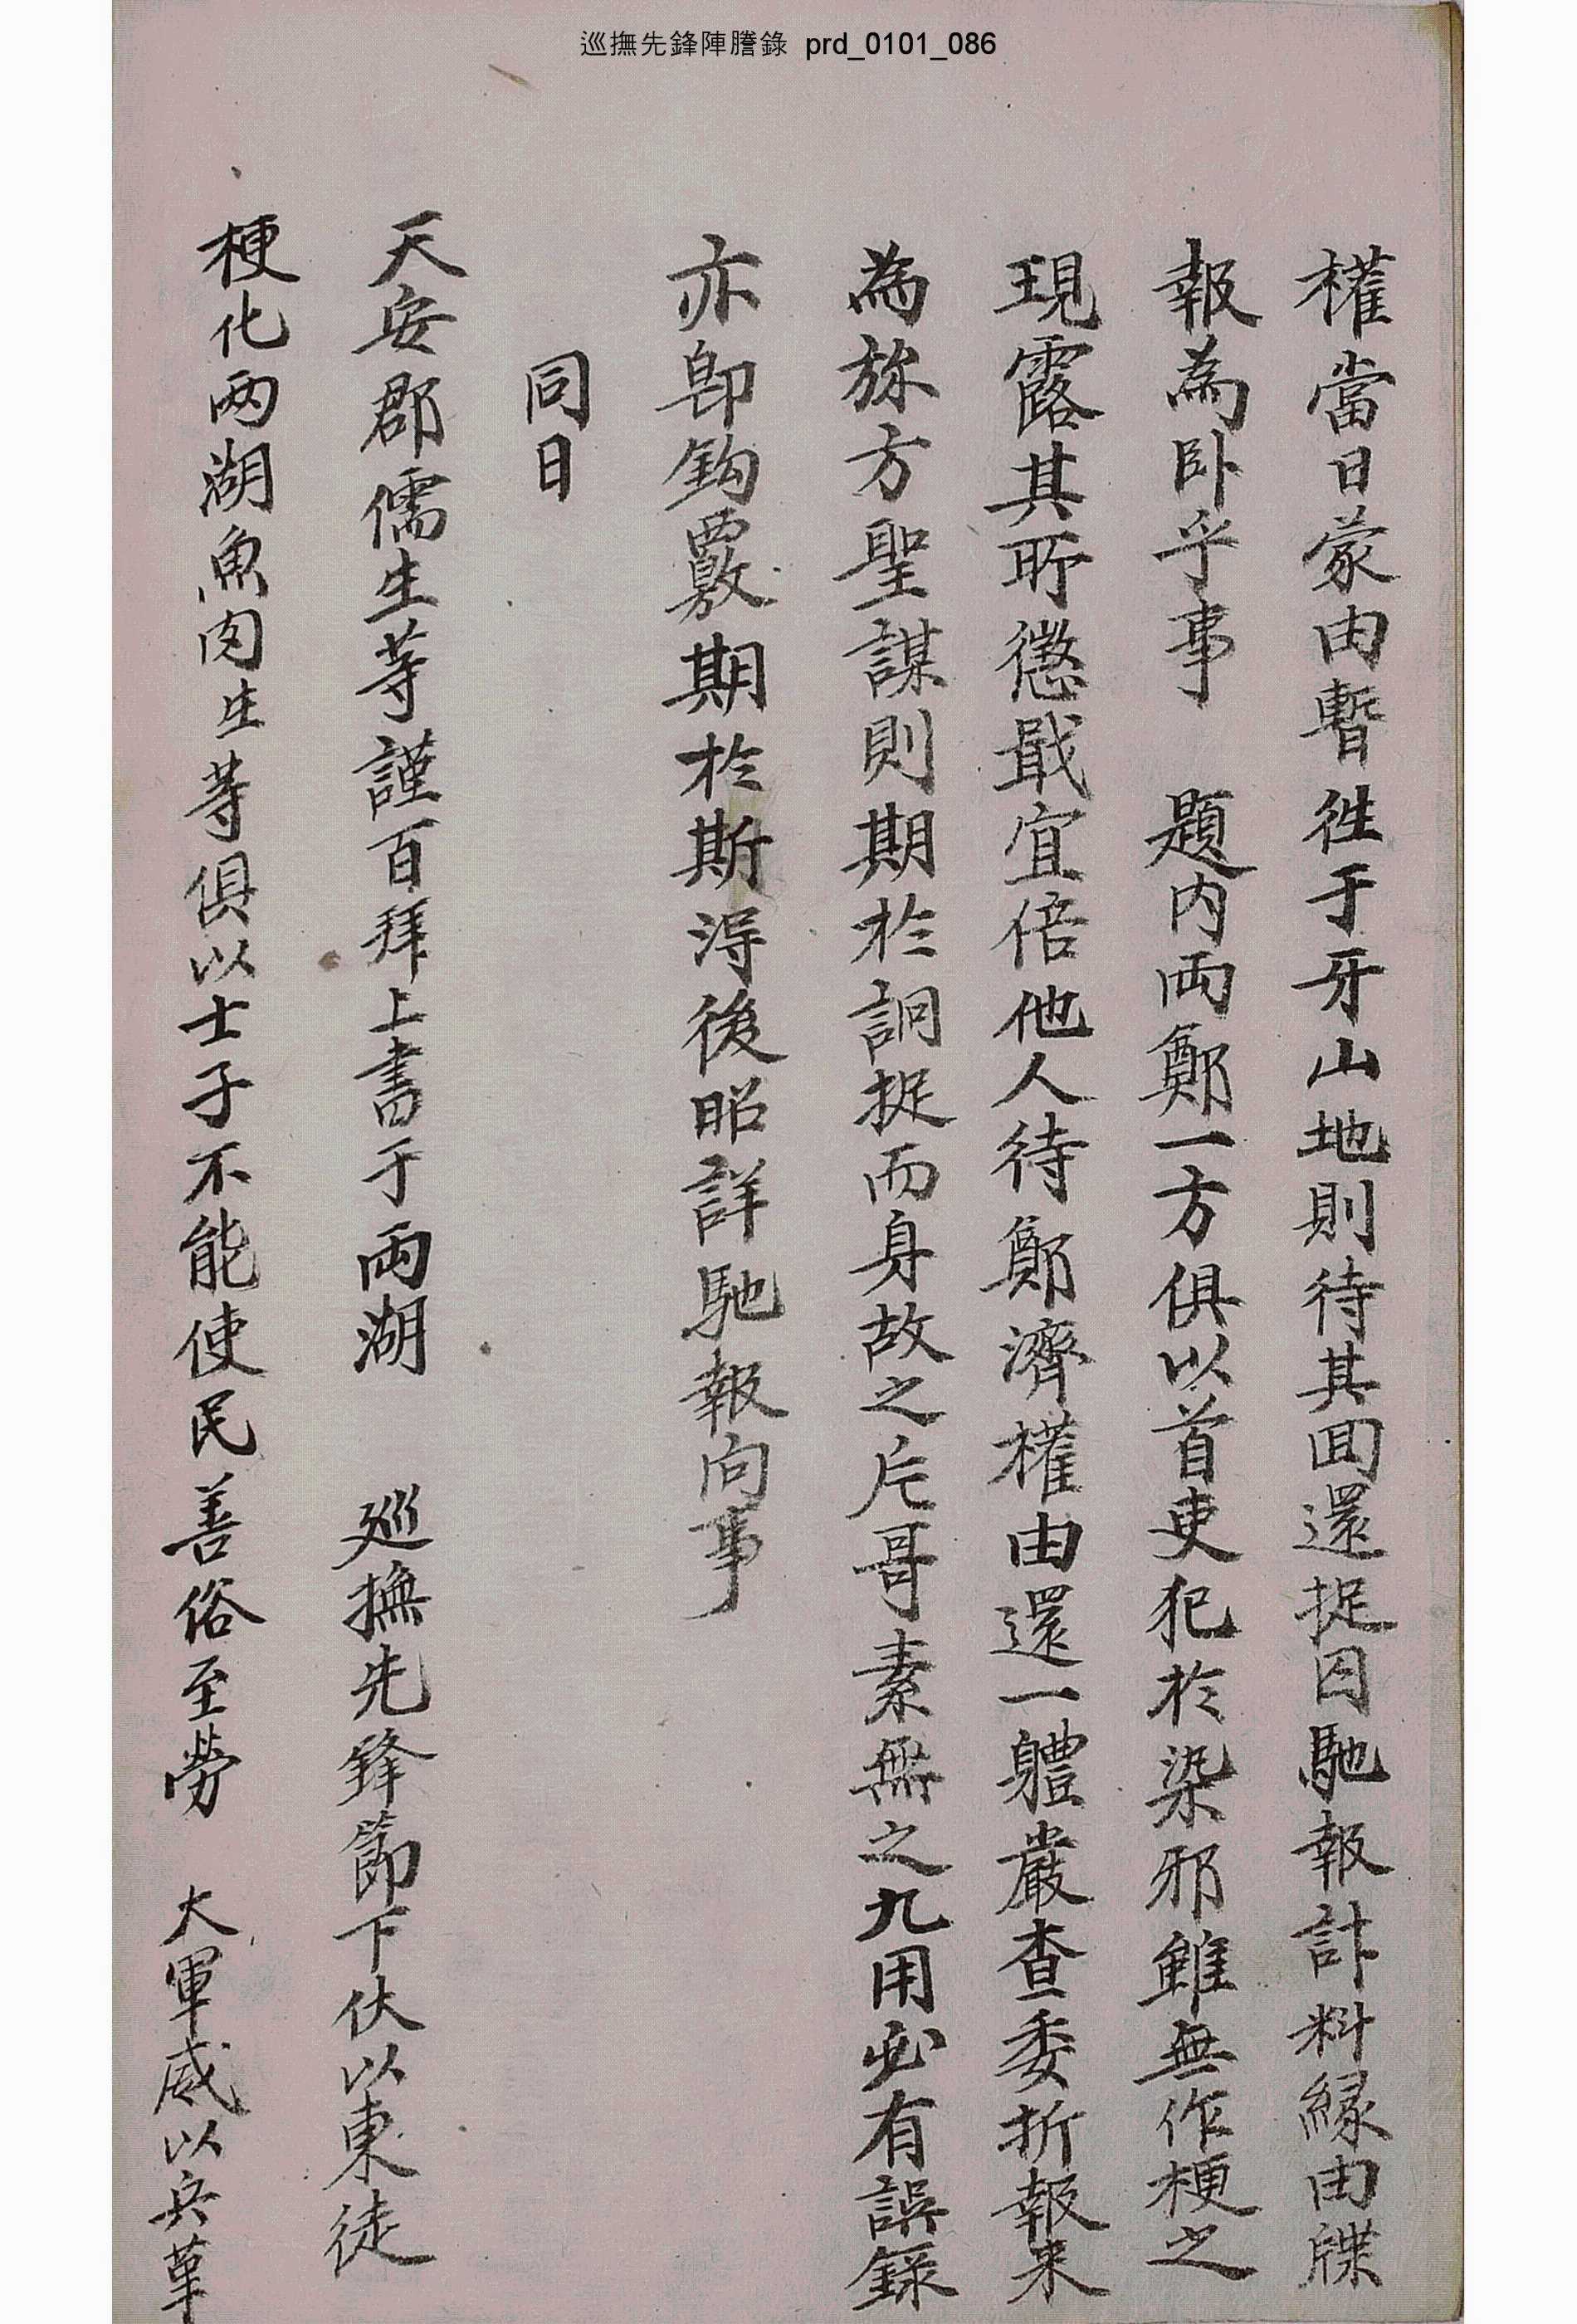 巡撫先鋒陣謄錄 prd_0101_086
權當日蒙由暫往于牙山地則待其回還捉囚馳報計料緣由牒
報為臥乎事 題內兩鄭一方俱以首吏犯於染邪雖無作梗之
現露其所懲戢宜倍他人待鄭濟權由還一軆嚴查委折報来
為旀方聖謀則期於詗捉而身故之片哥素無之九用必有誤錄
亦卽鈎覈期於斯淂後昭詳馳報向事
同日
天安郡儒生等謹百拜上書于兩湖 廵撫先鋒節下伏以東徒
梗化兩湖魚肉生等俱以士子不能使民善俗至勞 大軍威以兵革